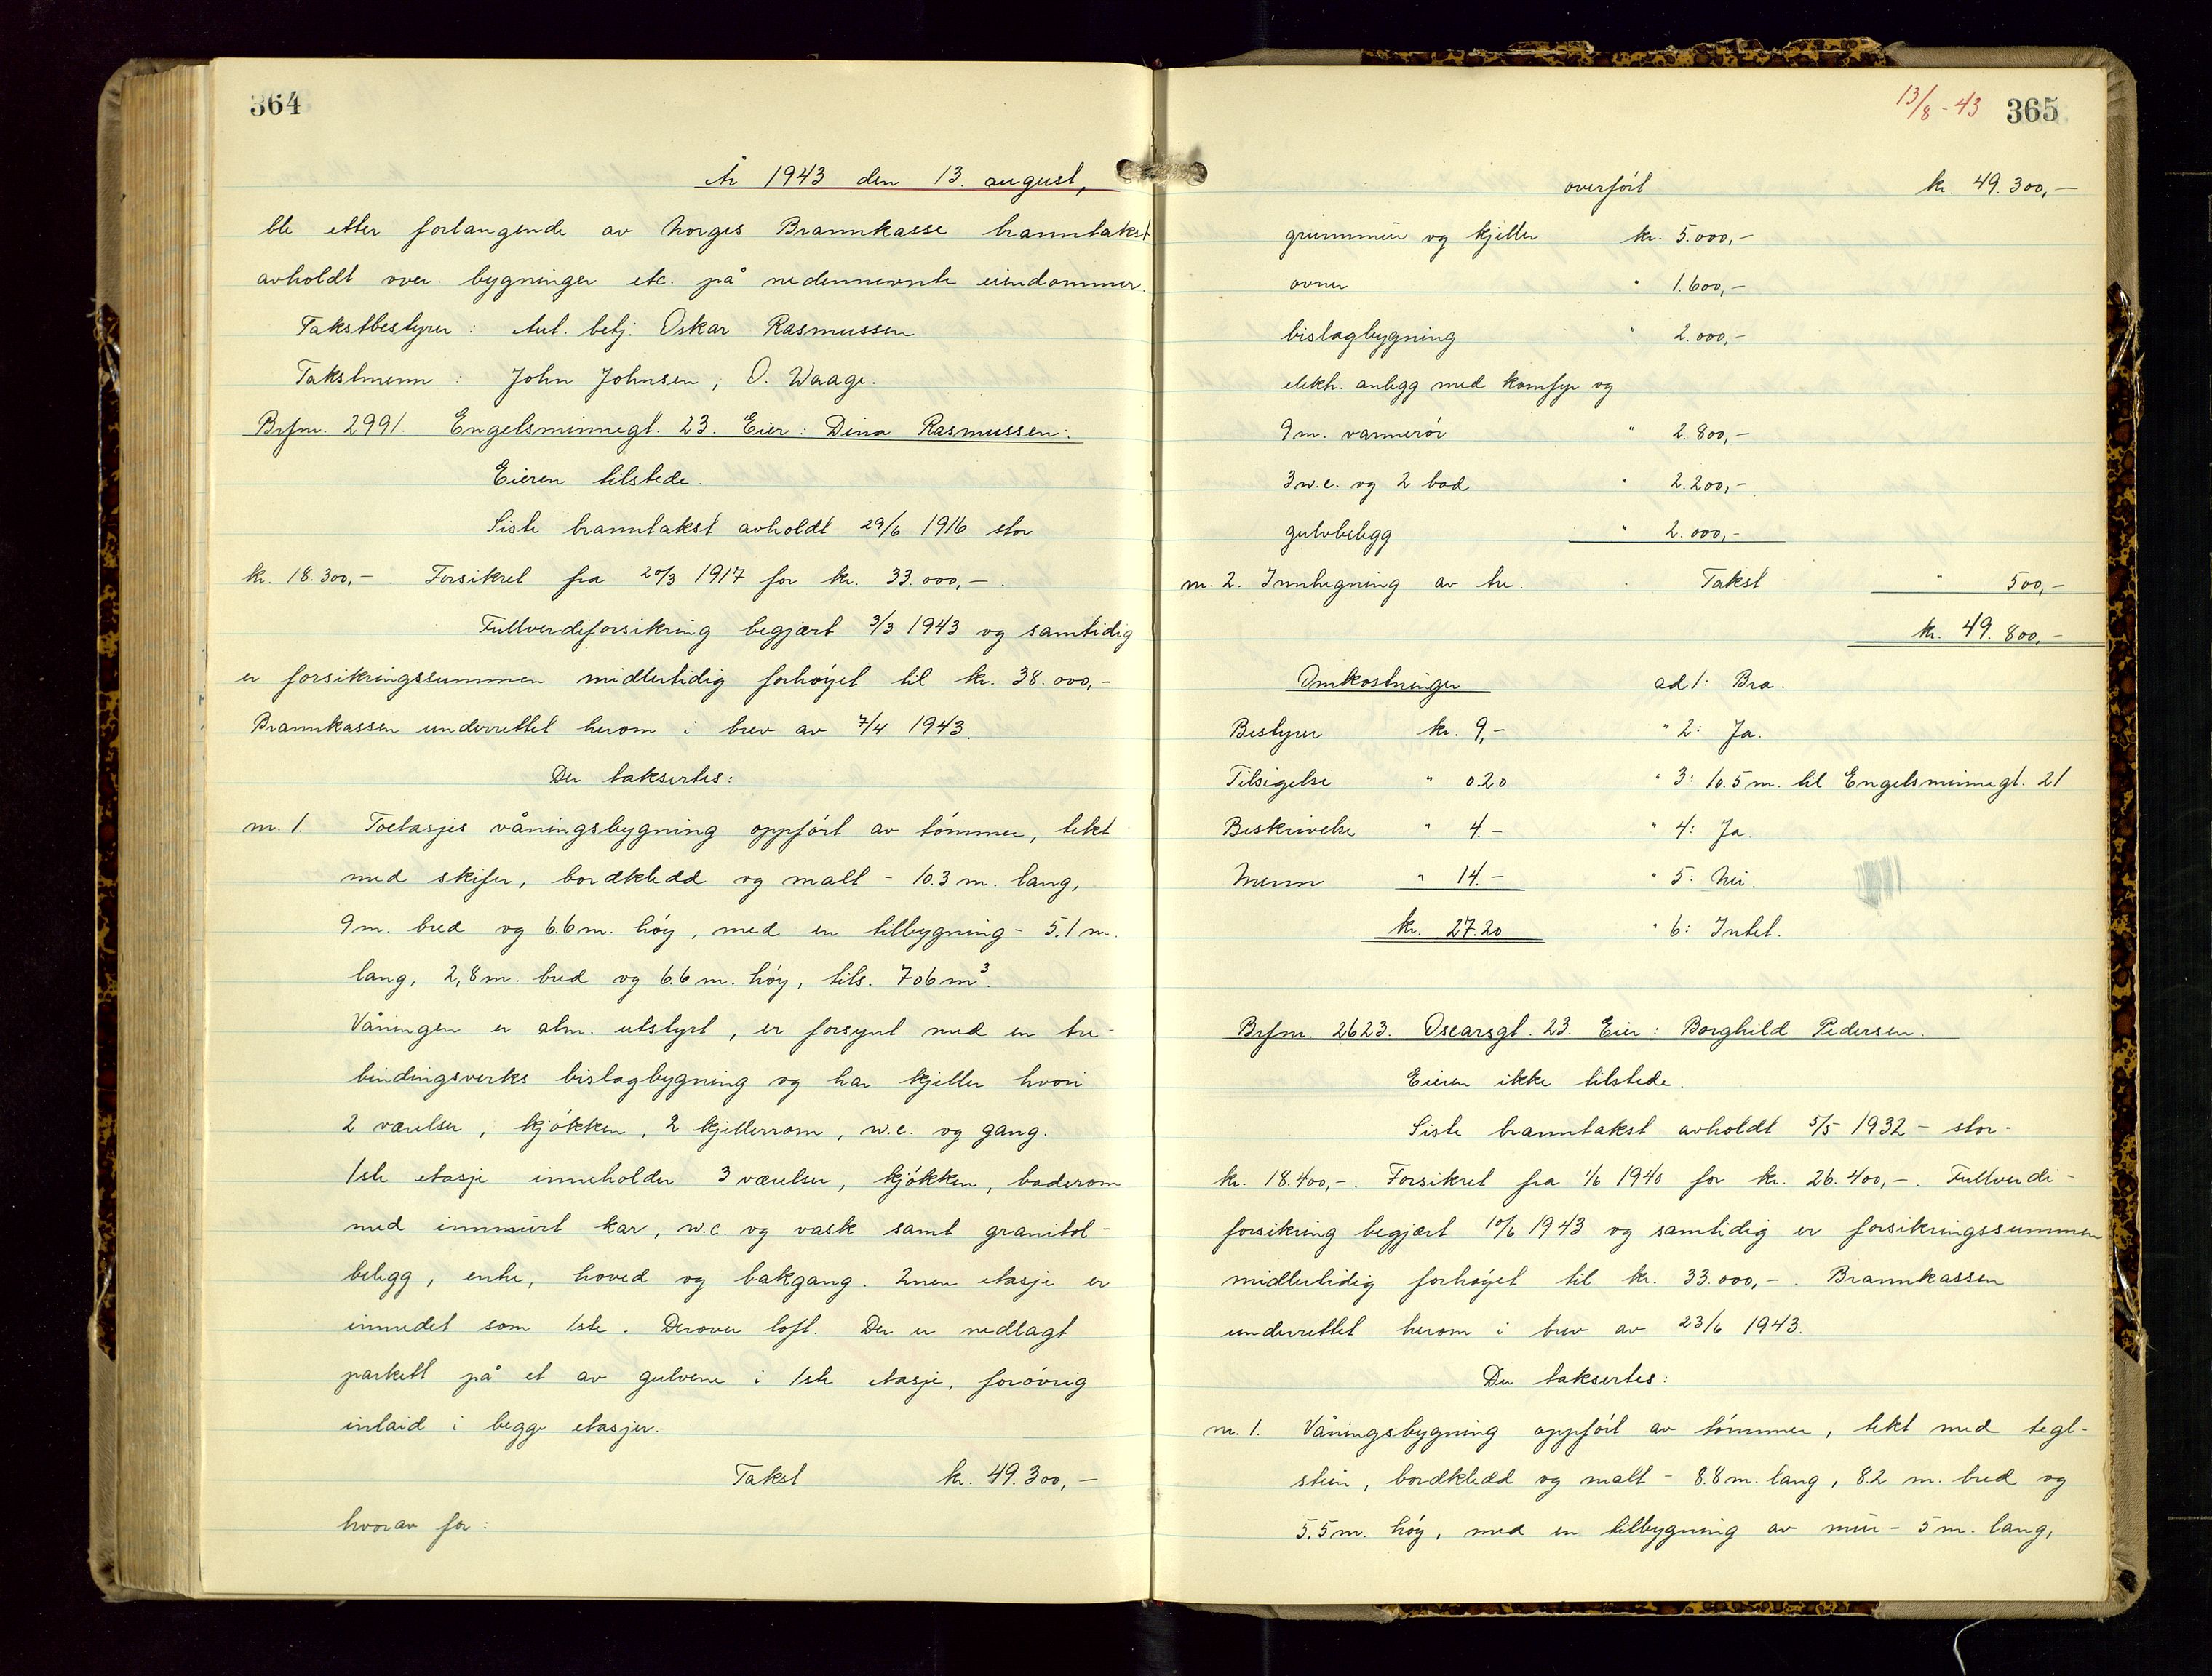 364
År 1943 den 13. august,
ble etter forlangende av Norges Brannkasse branntakst
avholdt over bygninger etc. på nedennevnte eiendommer.
Takstbestyrer: Aut. betj. Oskar Rasmussen
Takstmenn: John Johnsen, O. Waage.
Brfnr. 2991. Engelsminnegt. 23. Eier: Dina Rasmussen.
Eieren tilstede.
Siste branntakst avholdt 29/6 1916 stor
kr. 18.300,-. Forsikret fra 20/3 1917 for kr. 33.000,-.
Fullverdiforsikring begjært 3/3 1943 og samtidig
er forsikringssummen midlertidig forhøyet til kr. 38.000,-
Brannkassen underrettet herom i brev av 7/4 1943.
Der taksertes:
nr. 1. Toetasjes våningsbygning oppført av tømmer, tekt
med skifer, bordkledd og malt - 10.3 m. lang,
9 m. bred og 6.6 m. høy, med en tilbygning - 5.1 m.
lang, 2,8 m. bred og 6.6 m. høy, tils. 706 m³.
Våningen er alm. utstyrt, er forsynt med en tre-
bindingsverks bislagbygning og har kjeller hvori
2 værelser, kjøkken, 2 kjellerrom, w.c. og gang.
1ste etasje inneholder 3 værelser, kjøkken, baderom
med innmurt kar, w.c. og vask samt granitol-
belegg, entre, hoved og bakgang. 2nen etasje er
innredet som 1ste. Derover loft. Der er nedlagt
parkett på et av gulvene i 1ste etasje, forøvrig
inlaid i begge etasjer.
Takst kr. 49.300,-
hvorav for:
13/8-43 365
overført kr. 49.300,-
grunnmur og kjeller kr. 5.000,-
ovner " 1.600,-
bislagbygning " 2.000,-
elektr. anlegg med komfyr og
9 m. varmerør " 2.800,-
3 w.c. og 2 bad " 2.200,-
gulvbelegg " 2.000,-
nr. 2. Innhegning av tre. Takst " 500,-
kr. 49.800,-
Omkostninger ad 1: Bra.
Bestyrer kr. 9,- " 2: Ja.
Tilsigelse " 0.20 " 3: 10.5 m. til Engelsminnegt. 21
Beskrivelse " 4.- " 4: Ja.
Menn " 14.- " 5: Nei.
kr. 27.20 " 6: Intet.
Brfnr. 2623. Oscarsgt. 23. Eier: Borghild Pedersen.
Eieren ikke tilstede.
Siste branntakst avholdt 5/5 1932 - stor-
kr. 18.400,-. Forsikret fra 1/6 1940 for kr. 26.400,-. Fullverdi-
forsikring begjært 10/6 1943 og samtidig er forsikringssummen
midlertidig forhøyet til kr. 33.000,-. Brannkassen
underrettet herom i brev av 23/6 1943.
Der taksertes:
nr. 1. Våningsbygning oppført av tømmer, tekt med tegl-
stein, bordkledd og malt - 8.8 m. lang, 8.2 m. bred og
5.5 m. høy, med en tilbygning av mur - 5 m. lang,